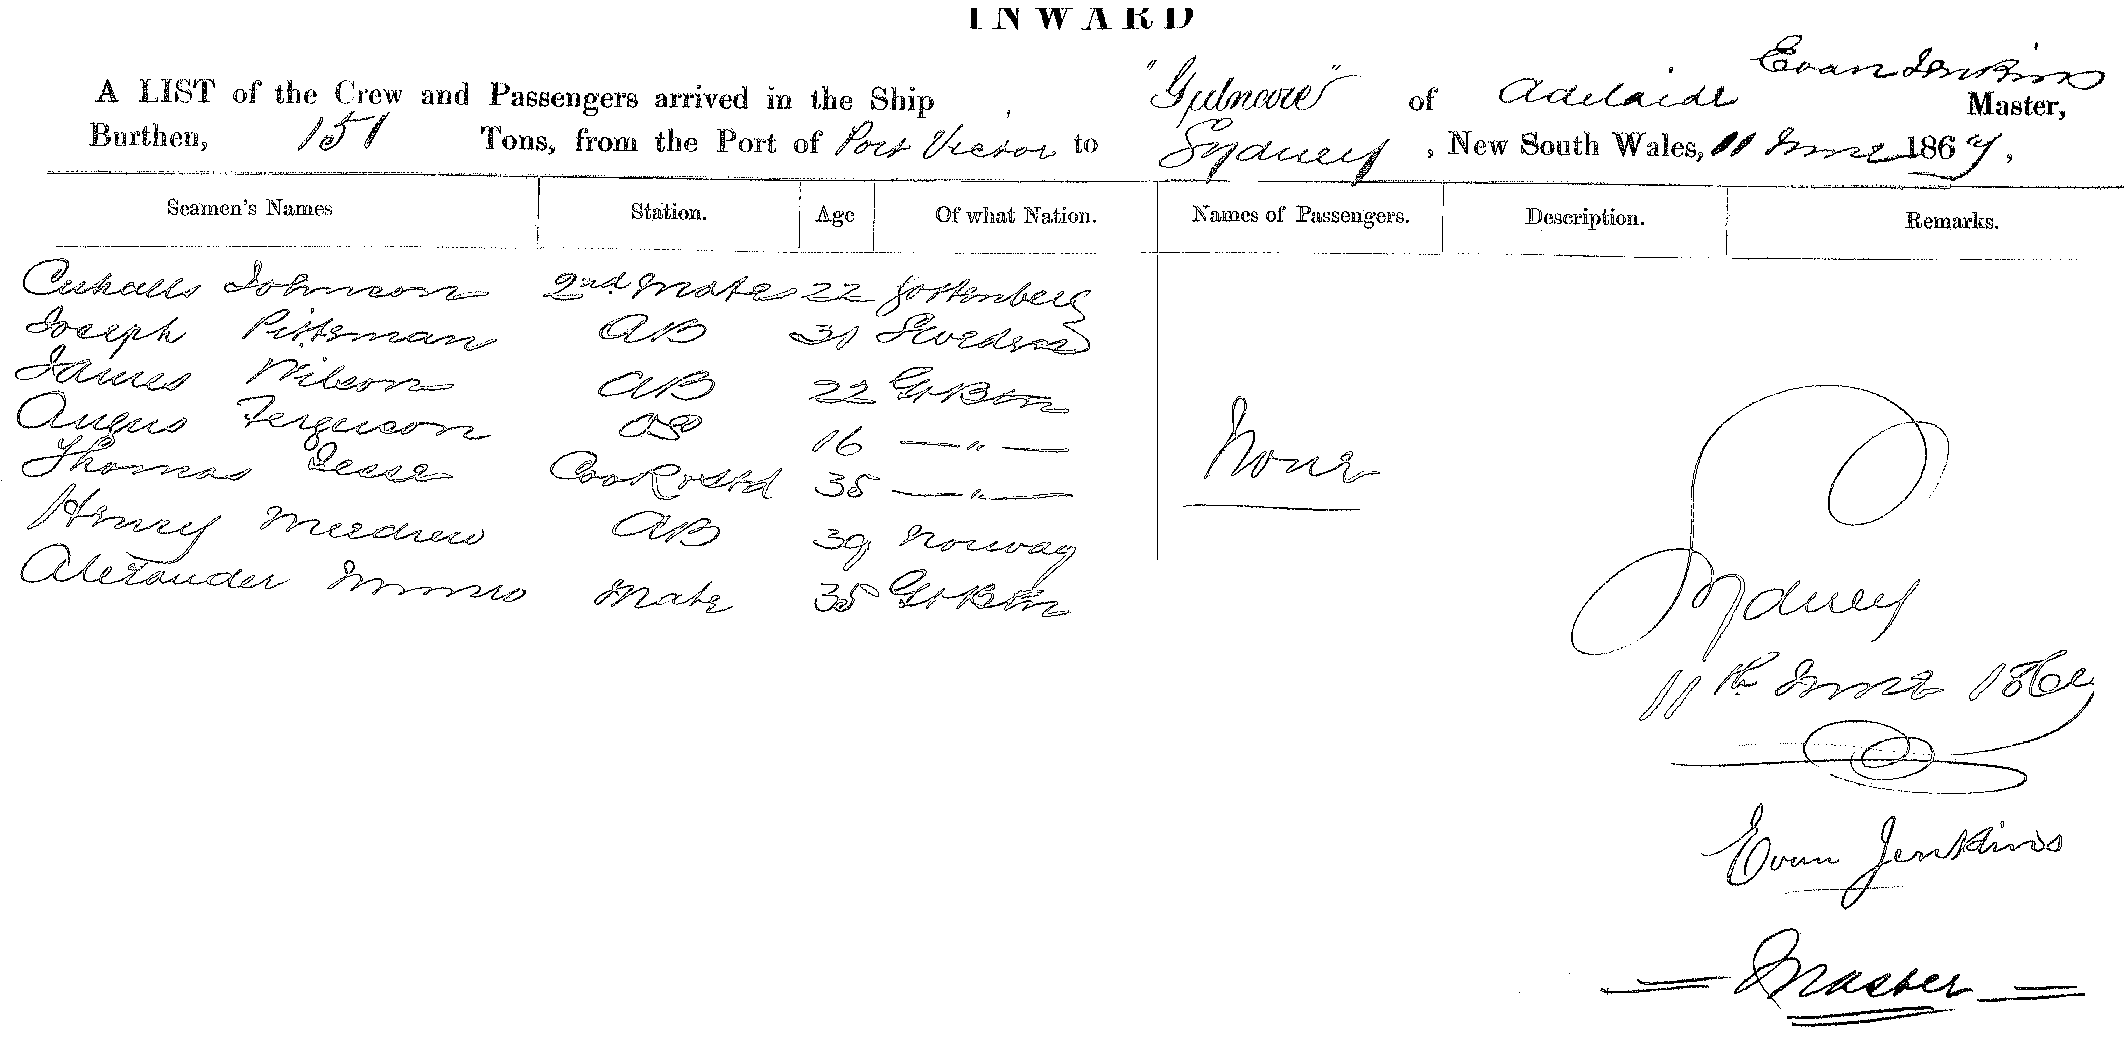 INWARD
A LIST of the Crew and Passengers arrived in the Ship , of Adelaide Evan Jenkins Master,
Burthen, 151 Tons, from the Port of Port Victor to Sydney , New South Wales, 11 June 186 ,
Seamen's Names Station. Age Of what Nation. Names of Passengers. Description. Remarks.
Johnson 2nd Mate 22 Gottenberg
Joseph Pittsman AB 31 Sweden
James Wilson AB 22 Gt Btn
Angus Ferguson OS 16 — " —
Thomas Jesse Cook & Std 35 — " —
None
Henry AB 39 Norway
Alexander Munro Mate 35 Gt Btn
Sydney
11th June 186
Evan Jenkins
Master